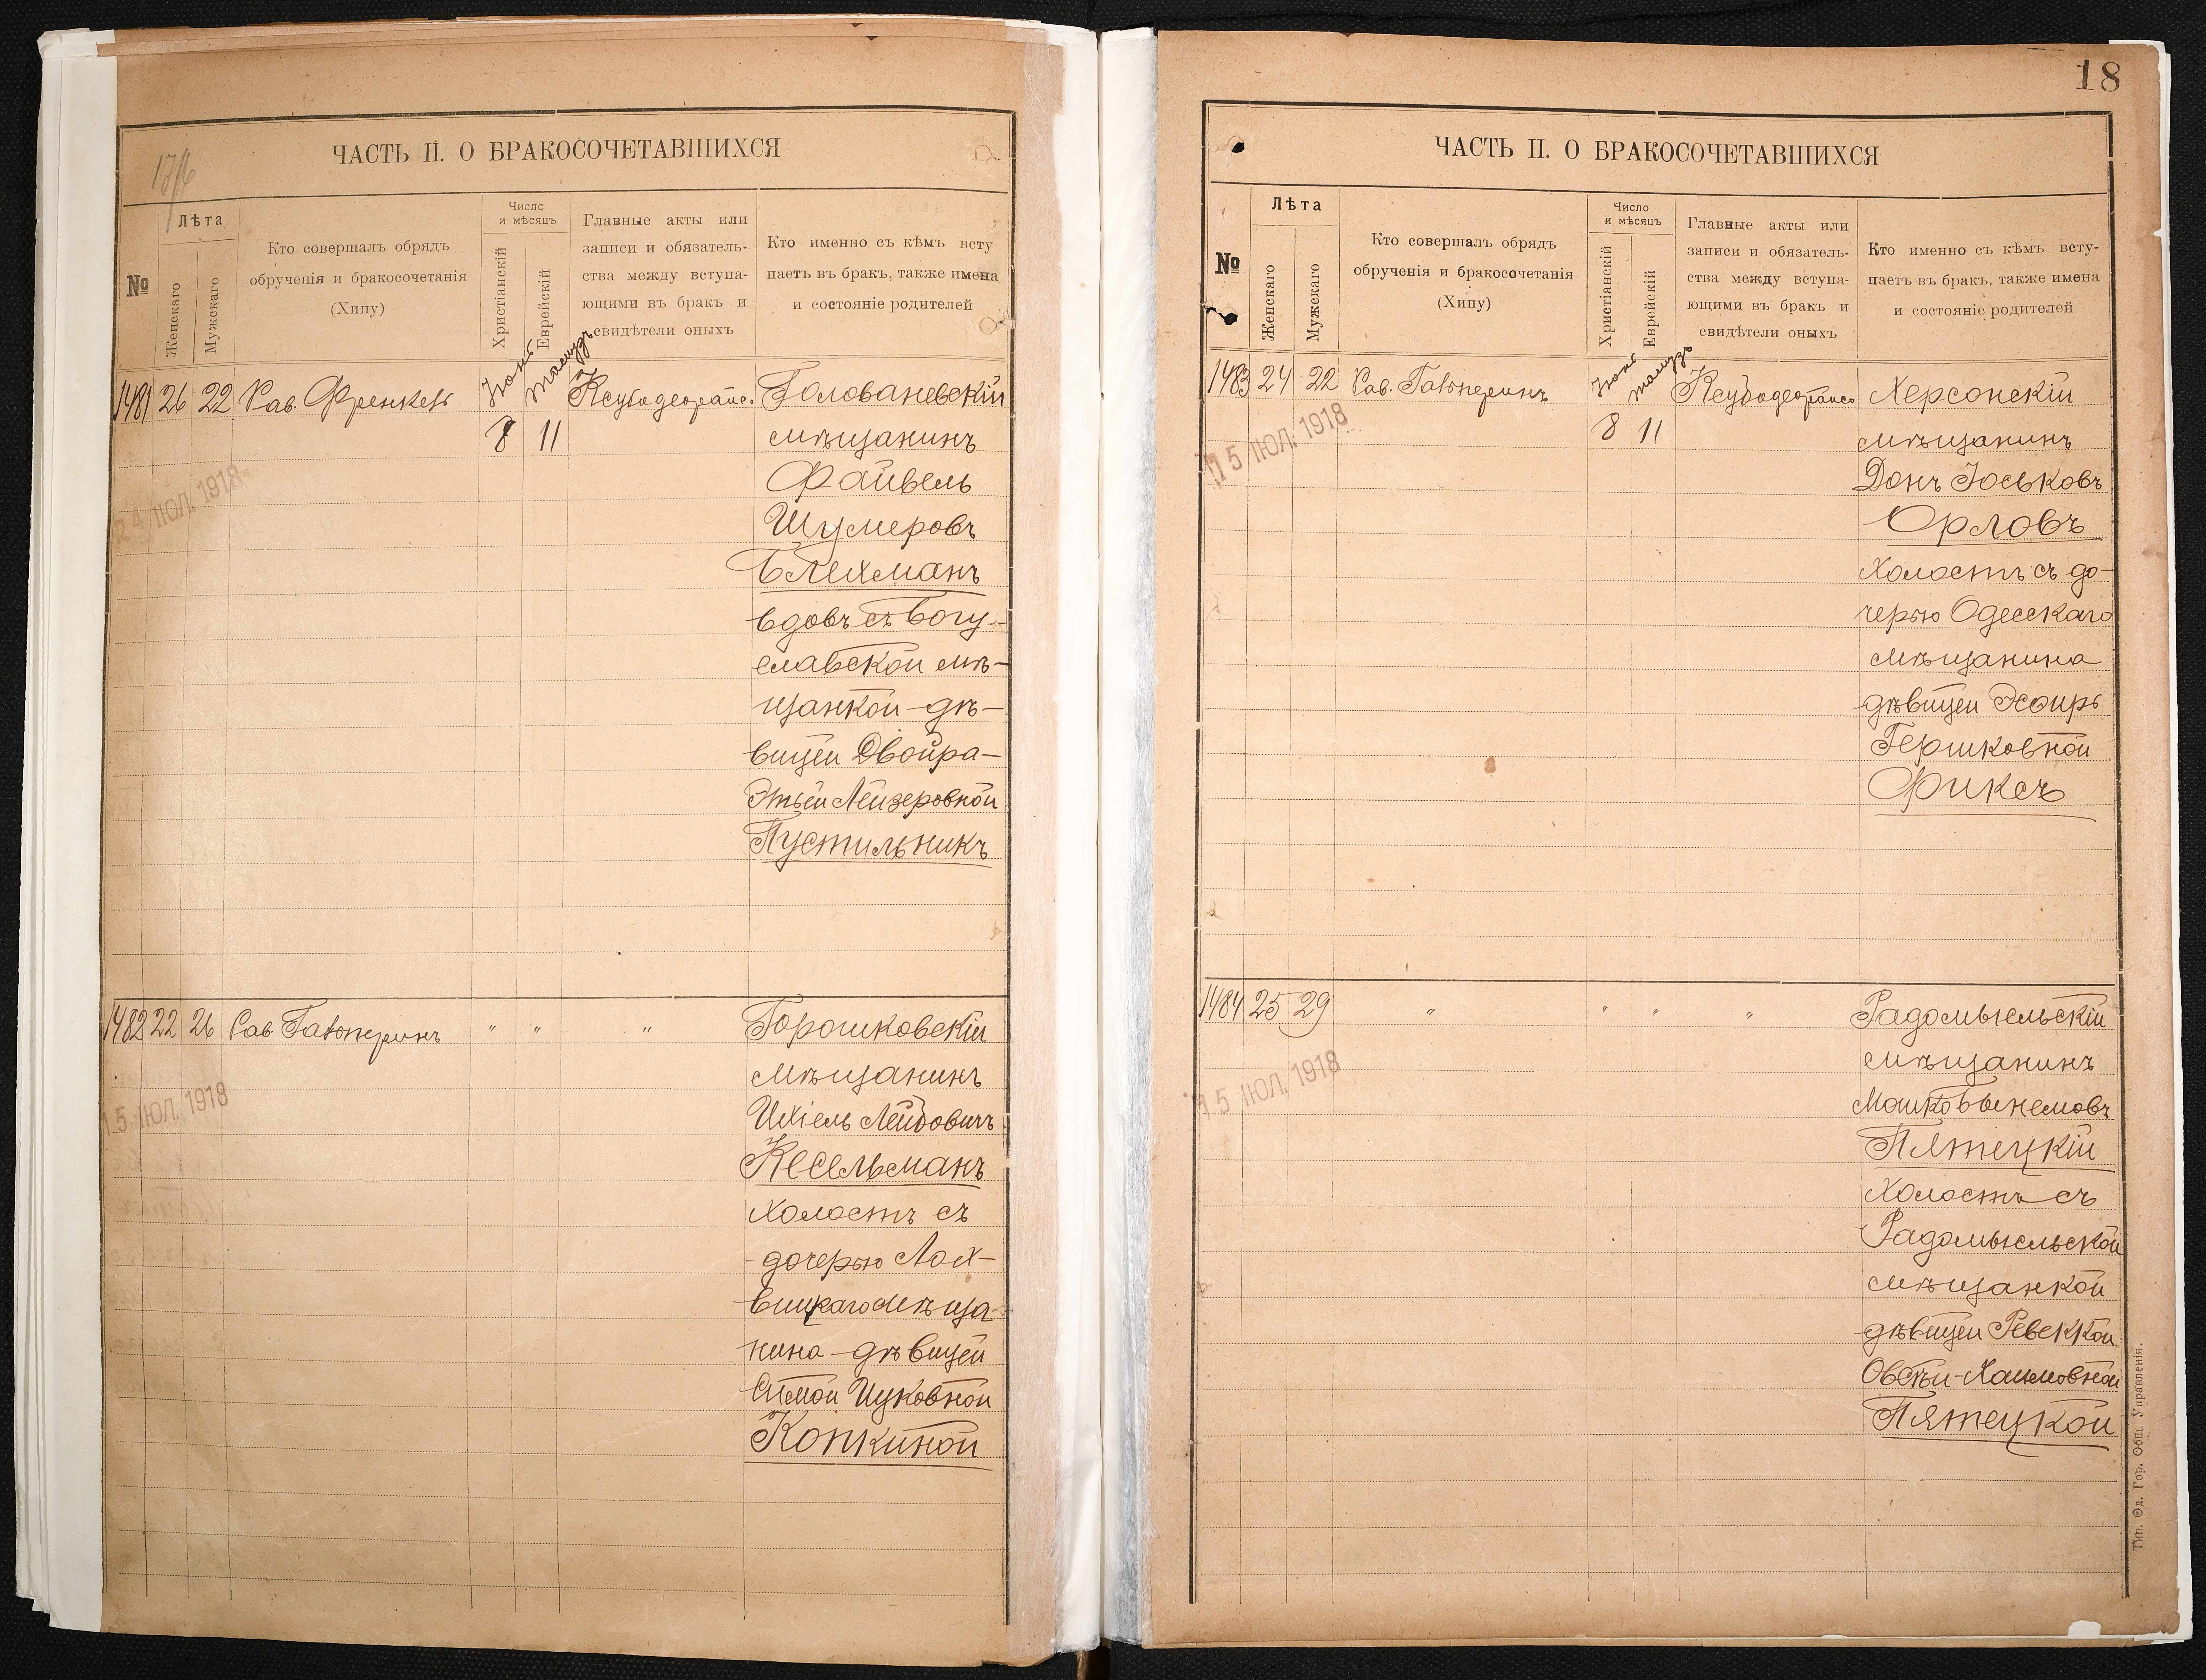 17/6
ЧАСТЬ II. О БРАКОСОЧЕТАВШИХСЯ
№
Лѣта
Женскаго
Мужскаго
Кто совершалъ обрядъ
обрученія и бракосочетанія
(Хипу)
Число
и мѣсяцъ
Христіанскій
Еврейскій
Главные акты или
записи и обязатель-
ства между вступа-
ющими въ бракъ и
свидѣтели оныхъ
Кто именно съ кѣмъ всту
паетъ въ бракъ, также имена
и состояніе родителей
1481 26 22 Рав. Френкель Іюнь Тамузъ
8 11
Головановскій
мѣщанинъ
Файвель
Шумеровъ
Блехманъ
вдовъ съ Богу-
славской мѣ-
щанкой дѣ-
вицей Двойра-
Этьей Лейзеровной
Пустильникъ
24 ІЮЛ. 1918
1482 22 26 Рав Гальперинъ " " "
Горошковскій
мѣщанинъ
Ихіель Лейбовичъ
Кесельманъ
Холостъ съ
дочерью Лох-
вицкаго мѣща-
нина дѣвицей
Симой Ицковной
Копкиной
15 ІЮЛ. 1918
18
ЧАСТЬ II. О БРАКОСОЧЕТАВШИХСЯ
№
Лѣта
Женскаго
Мужскаго
Кто совершалъ обрядъ
обрученія и бракосочетанія
(Хипу)
Число
и мѣсяцъ
Христіанскій
Еврейскій
Главные акты или
записи и обязатель-
ства между вступа-
ющими въ бракъ и
свидѣтели оныхъ
Кто именно съ кѣмъ всту-
паетъ въ бракъ, также имена
и состояніе родителей
1483 24 22 Рав. Гальперинъ Іюнь Тамузъ
8 11
Херсонскій
мѣщанинъ
Донъ Іоськовъ
Орловъ
Холостъ съ до-
черью Одесскаго
мѣщанина
дѣвицей Эсѳирь
Гершковной
Фиксъ
15 ІЮЛ. 1918
1484 25 29 " " " "
Радомысльскій
мѣщанинъ
Мошко
Пятецкій
Холостъ съ
Радомысльской
мѣщанкой
дѣвицей Ревеккой
Хаимовной
Пятецкой
15 ІЮЛ. 1918
Тип. Од. Гор. Общ. Управленія.